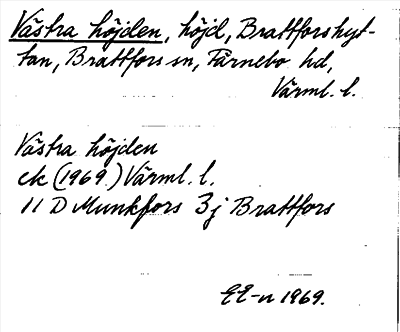 Västra höjden, höjd, Brattforshyt-
tan, Brattfors sn, Färnebo hd,
Värml. l.
Västra höjden
ek (1969) Värml. l.
11 D Munkfors 3j Brattfors
EE-n 1969.